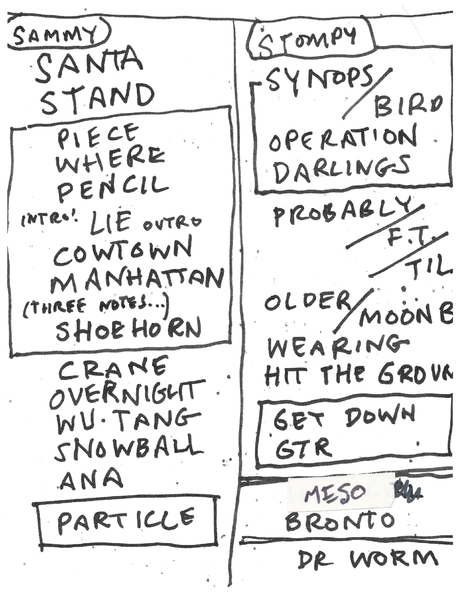 SAMMY
SANTA
STAND
PIECE
WHERE
PENCIL
INTRO! LIE OUTRO
COWTOWN
MANHATTAN
(THREE NOTES...)
SHOEHORN
CRANE
OVERNIGHT
WU-TANG
SNOWBALL
ANA
PARTICLE
STOMPY
SYNOPS/
BIRD
OPERATION
DARLINGS
PROBABLY
F.T.
TIL
OLDER/
MOONB
WEARING
HIT THE GROUN
GET DOWN
GTR
MESO
BRONTO
DR WORM